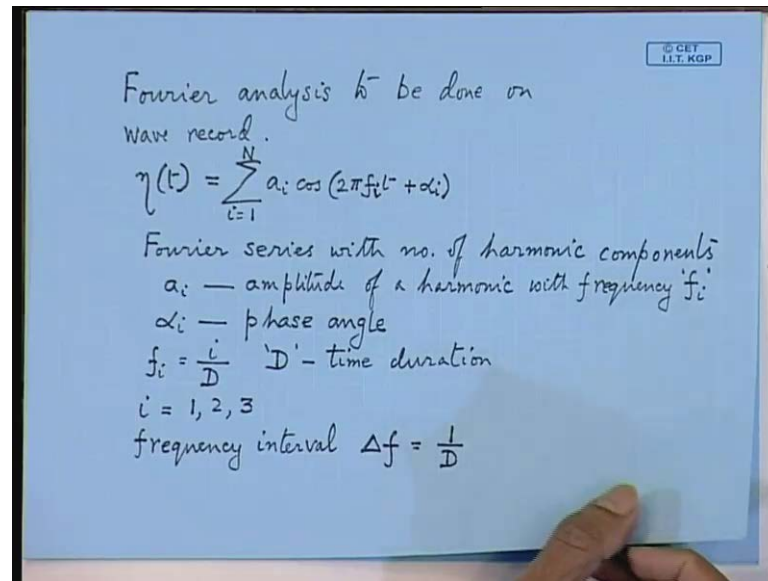 © CET
I.I.T. KGP
Fourier analysis to be done on
wave record.
η(t) = N∑i=1 ai cos (2πfit + αi)
Fourier series with no. of harmonic components
ai — amplitude of a harmonic with frequency 'fi'
αi — phase angle
fi = i/D 'D' - time duration
i = 1, 2, 3
frequency interval Δf = 1/D